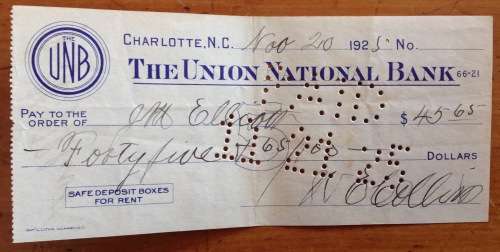 THE
UNB
CHARLOTTE, N.C. Nov 20 1925 No.
THE UNION NATIONAL BANK 66-21
PAY TO THE
ORDER OF JM Elliott $ 45 65
Forty five & 65/100 DOLLARS
SAFE DEPOSIT BOXES
FOR RENT
W E Collins
PAID
11 21 25